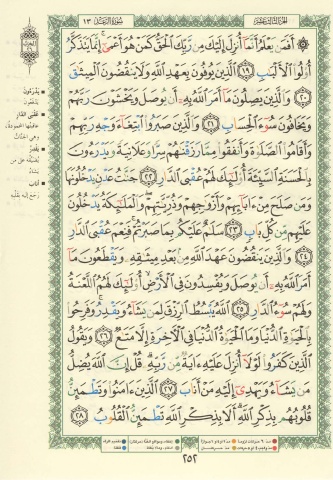 الجزء الثالث عشر
سورة الرعد ١٣
۞ أَفَمَن يَعْلَمُ أَنَّمَآ أُنزِلَ إِلَيْكَ مِن رَّبِّكَ ٱلْحَقُّ كَمَنْ هُوَ أَعْمَىٰٓ ۚ إِنَّمَا يَتَذَكَّرُ
أُو۟لُوا۟ ٱلْأَلْبَٰبِ ١٩ ٱلَّذِينَ يُوفُونَ بِعَهْدِ ٱللَّهِ وَلَا يَنقُضُونَ ٱلْمِيثَٰقَ
٢٠ وَٱلَّذِينَ يَصِلُونَ مَآ أَمَرَ ٱللَّهُ بِهِۦٓ أَن يُوصَلَ وَيَخْشَوْنَ رَبَّهُمْ
وَيَخَافُونَ سُوٓءَ ٱلْحِسَابِ ٢١ وَٱلَّذِينَ صَبَرُوا۟ ٱبْتِغَآءَ وَجْهِ رَبِّهِمْ
وَأَقَامُوا۟ ٱلصَّلَوٰةَ وَأَنفَقُوا۟ مِمَّا رَزَقْنَٰهُمْ سِرًّا وَعَلَانِيَةً وَيَدْرَءُونَ
بِٱلْحَسَنَةِ ٱلسَّيِّئَةَ أُو۟لَٰٓئِكَ لَهُمْ عُقْبَى ٱلدَّارِ ٢٢ جَنَّٰتُ عَدْنٍ يَدْخُلُونَهَا
وَمَن صَلَحَ مِنْ ءَابَآئِهِمْ وَأَزْوَٰجِهِمْ وَذُرِّيَّٰتِهِمْ ۖ وَٱلْمَلَٰٓئِكَةُ يَدْخُلُونَ
عَلَيْهِم مِّن كُلِّ بَابٍ ٢٣ سَلَٰمٌ عَلَيْكُم بِمَا صَبَرْتُمْ ۚ فَنِعْمَ عُقْبَى ٱلدَّارِ
٢٤ وَٱلَّذِينَ يَنقُضُونَ عَهْدَ ٱللَّهِ مِنۢ بَعْدِ مِيثَٰقِهِۦ وَيَقْطَعُونَ مَآ
أَمَرَ ٱللَّهُ بِهِۦٓ أَن يُوصَلَ وَيُفْسِدُونَ فِى ٱلْأَرْضِ ۙ أُو۟لَٰٓئِكَ لَهُمُ ٱللَّعْنَةُ
وَلَهُمْ سُوٓءُ ٱلدَّارِ ٢٥ ٱللَّهُ يَبْسُطُ ٱلرِّزْقَ لِمَن يَشَآءُ وَيَقْدِرُ ۚ وَفَرِحُوا۟
بِٱلْحَيَوٰةِ ٱلدُّنْيَا وَمَا ٱلْحَيَوٰةُ ٱلدُّنْيَا فِى ٱلْأَخِرَةِ إِلَّا مَتَٰعٌ ٢٦ وَيَقُولُ
ٱلَّذِينَ كَفَرُوا۟ لَوْلَآ أُنزِلَ عَلَيْهِ ءَايَةٌ مِّن رَّبِّهِۦ ۗ قُلْ إِنَّ ٱللَّهَ يُضِلُّ
مَن يَشَآءُ وَيَهْدِىٓ إِلَيْهِ مَنْ أَنَابَ ٢٧ ٱلَّذِينَ ءَامَنُوا۟ وَتَطْمَئِنُّ
قُلُوبُهُم بِذِكْرِ ٱللَّهِ ۗ أَلَا بِذِكْرِ ٱللَّهِ تَطْمَئِنُّ ٱلْقُلُوبُ ٢٨
٢٥٢
يدرءون
يدفعون
عقبى الدار
عاقبتها المحمودة،
وهي الجنّات
يقدر
يضيّقه على من
يشاء
أناب
رجع إليه بقلبه